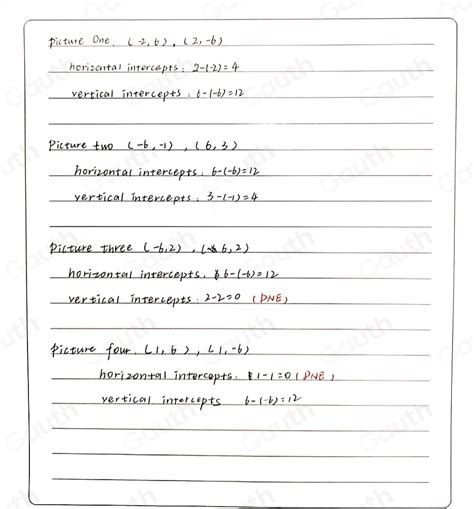 Picture One. (-2,6), (2,-6)
horizontal intercepts: 2-(-2)=4
vertical intercepts: 6-(-6)=12
Picture two (-6,-1), (6,3)
horizontal intercepts: 6-(-6)=12
vertical intercepts: 3-(-1)=4
Picture three (-6,2), (6,2)
horizontal intercepts. 6-(-6)=12
vertical intercepts: 2-2=0 (DNE)
Picture four. (1,6), (1,-6)
horizontal intercepts: 1-1=0 (DNE)
vertical intercepts 6-(-6)=12